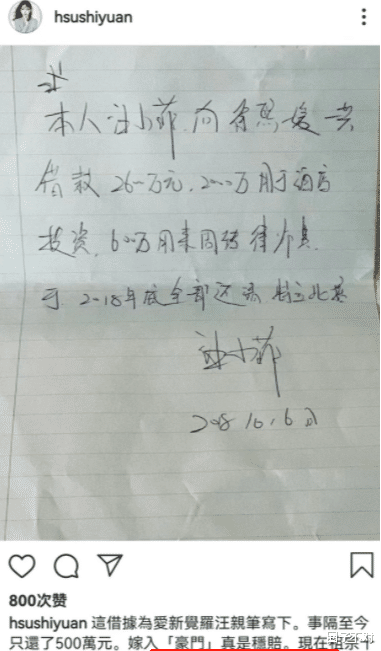 hsushiyuan
本人汪小菲向徐熙媛共
借款2600万元,2000万用于酒店
投资,600万用来周转
于2018年底全部还清 特立此据
汪小菲
2018.10.6日
800次赞
hsushiyuan 這借據為愛新覺羅汪親筆寫下。事隔至今
只還了500萬元。嫁入「豪門」真是穩賠。現在祖宗十